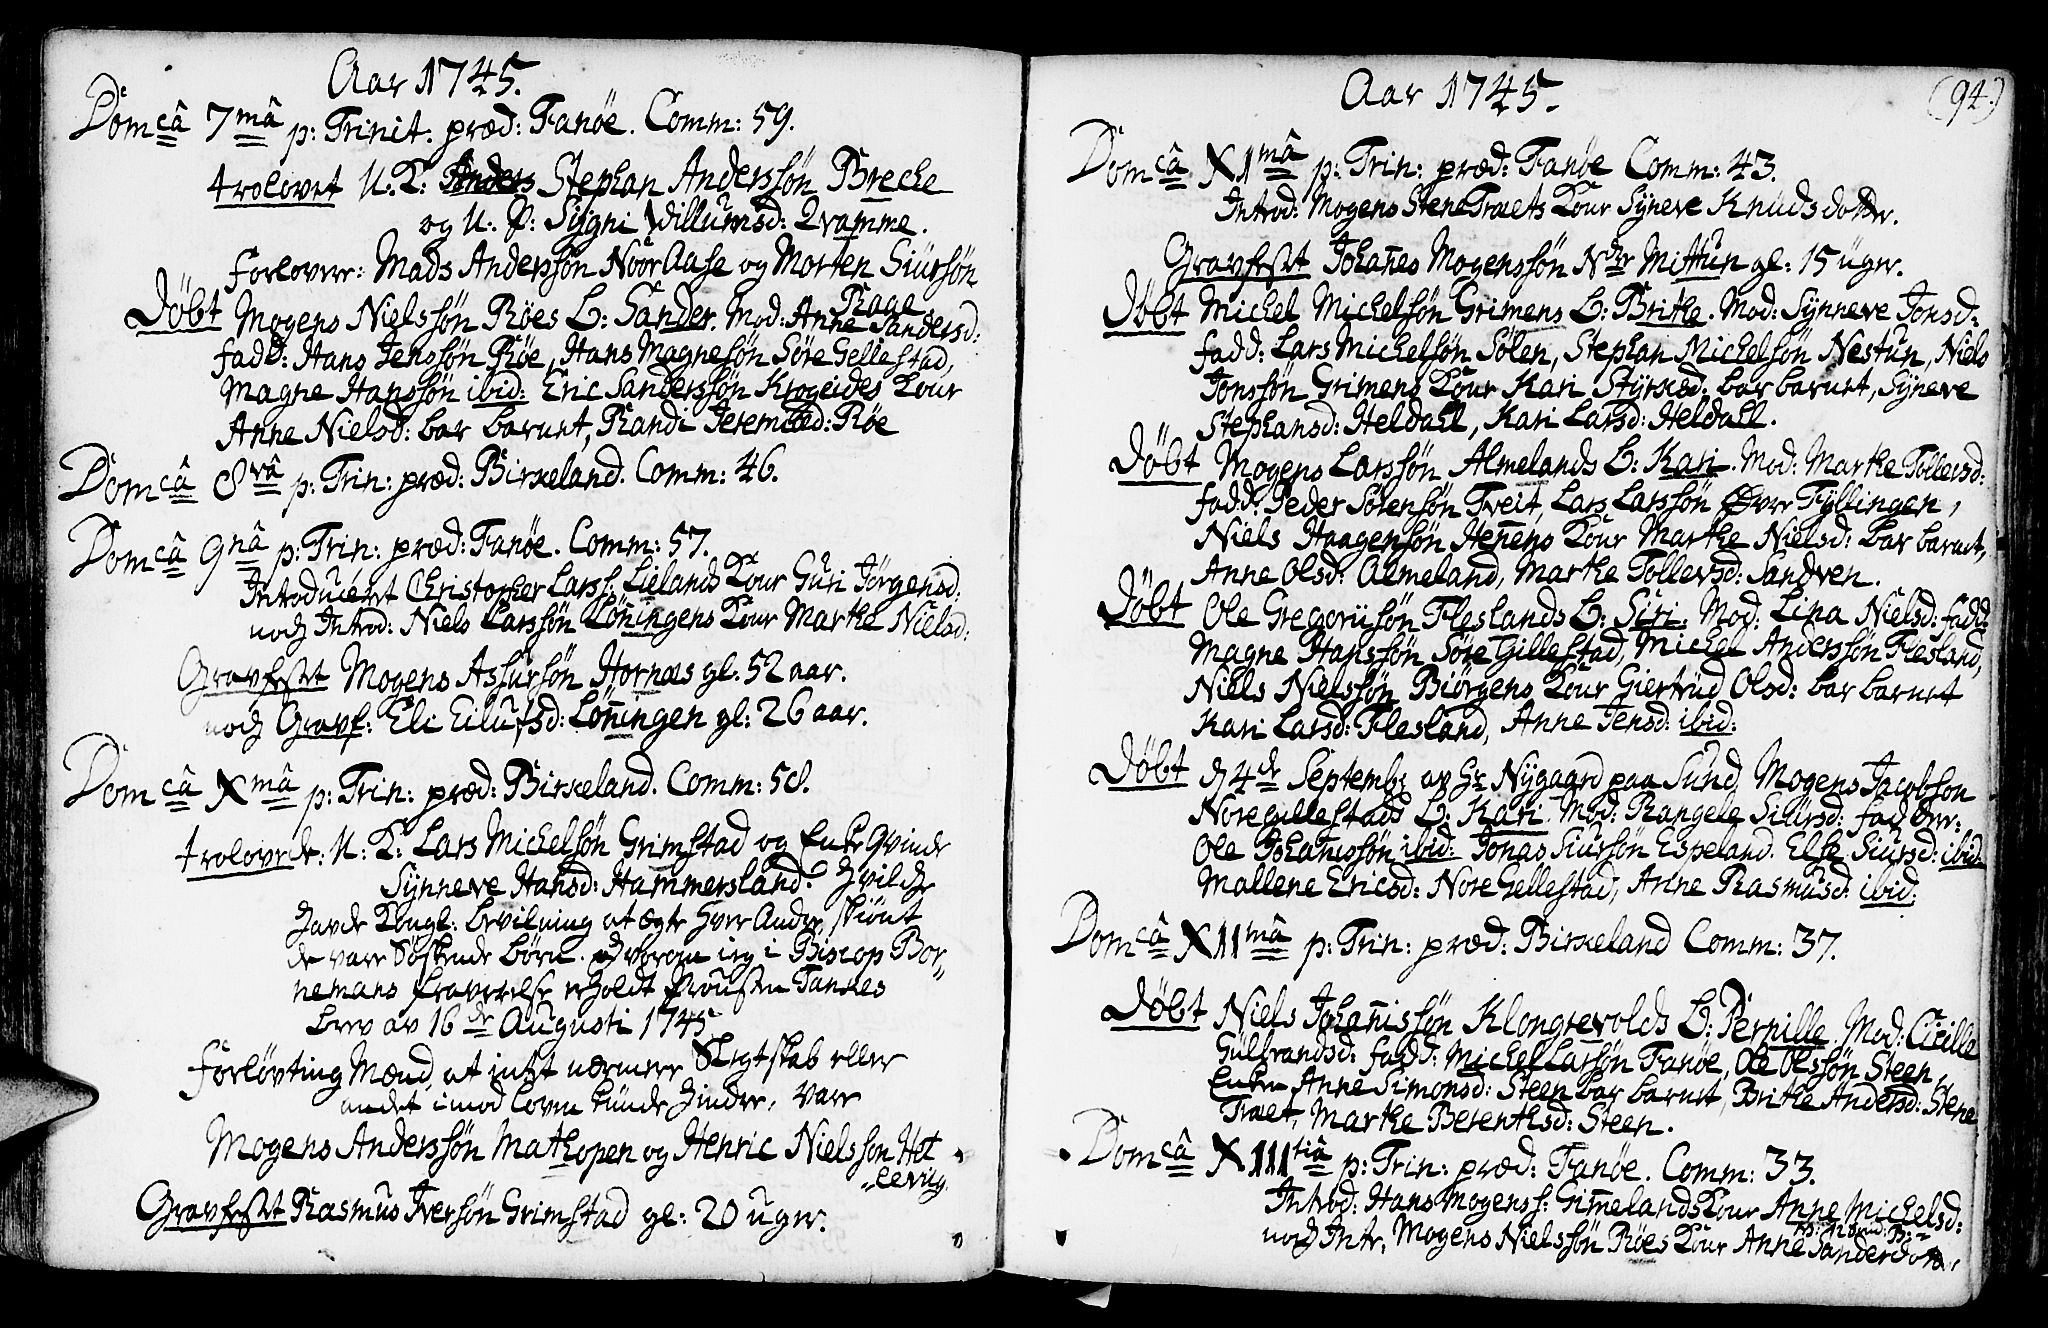 Aar 1745.
Domcâ 7mâ p: Trinit. præd: Fanöe. Comm: 59.
trolovet U. K: Anders Stephan Anderssön Breche
og U. P: Sygni Willumsd: Qvamme.
Forlovere: Mads Anderssön NöörAase og Morten Siursön
Rage
Döbt Mogens Nielssön Röes B: Sander. Mod: Anne Sandersd:
fadd: Hans Jenssön Röe, Hans Magnesön Söre Gellestad,
Magne Hanssön ibid: Eric Sanderssön Krogeides Kone
Anne Nielsd: bar barnet, Randi Jeremiæd: Röe
Domcâ 8vâ p: Trin: præd: Birkeland. Comm: 46.
Domcâ 9nâ p: Trin: præd: Fanöe. Comm: 57.
Introduceret Christopher Larss: Lielands Kone Guri Jörgensd:
noch Introd: Niels Larssön Löningens Kone Marthe Nielsd:
Gravfestet Mogens Assursön Hornæs gl. 52 aar.
noch Gravf: Eli Eilufsd: Löningen gl: 26 aar.
Domcâ Xmâ p: Trin: præd: Birkeland. Comm: 58.
trolovede: U. K: Lars Michelsön Grimstad og Enke Qvinde
Synneve Hansd: Hammersland. Hvilche
havde Kongl: bevilning at ægte hver Andre, skiönt
de vare Söskende börn. hvorom ieg i Biscop Bor-
nemans fraverelse erholdt Provsten Tankes
brev av 16de Augusti 1745.
Forlöfting Mænd, at intet nærmere Slegtskab eller
andet imod loven kunde hindre, vare
Mogens Anderssön Mathopen og Henric Nielsson Het
levig.
Gravfestet Rasmus Iversön Grimstad gl: 20 uger.
Aar 1745.
(94.)
Domcâ XImâ p: Trin: præd: Fanöe Comm: 43.
Introd: Mogens SteneTræets Kone Syneve Knudsdotter.
Gravfestet Johañes Mogenssön Ndre Mittun gl: 15 uger.
Döbt Michel Michelsön Grimens B: Brithe. Mod: Synneve Jonsd:
fadd: Lars Michelsön Sölen, Stephan Michelsön Nestun, Niels
Jonssön Grimens Kone Kari Styrksd: bar barnet, Syneve
Stephansd: Heldahl, Kari Larsd: Heldahl.
Döbt Mogens Larssön Almelands B: Kari. Mod: Marthe Tollevsd:
fadd: Peder Sörensön Tveit, Lars Larssön Øvre Fyllingen,
Niels Haagensön Heñens Kone Marthe Nielsd: bar barnet,
Anne Olsd: Almeland, Marthe Tollevsd: Sandven.
Döbt Ole Gregoriisön Fleslands B: Siri: Mod: Lisa Nielsd: fadd:
Magne Hanssön Söre Gillestad, Michel Anderssön Flesland,
Niels Nielssön Biörgens Kone Giertrud Olsd: bar barnet
Kari Larsd: Flesland, Anne Jensd: ibid:
Döbt d 4de Septembr av Hr Nygaard paa Sund, Mogens Jacobson
Noregillestads B: Kari. Mod: Rangele Siursd: fadder:
Ole Johañissön ibid: Jonas Siursön Espeland. Else Siursd: ibid:
Mallene Ericsd: Nore Gellestad, Anne Rasmusd: ibid:
Domcâ XIImâ p: Trin: præd: Birkeland Comm: 37.
Döbt Niels Johañissön Klongrevolds B: Pernille. Mod: Cicille
Gulbrandsd: fadd: Michel Larsön Fanöe, Ole Olssön Steen,
Enken Anne Simonsd: Steen bar barnet, Brithe Andersd: Stene
Træet, Marthe Berenthsd: Steen.
Domcâ XIIItiâ p: Trin: præd: Fanöe. Comm: 33.
Introd: Hans Mogenss: Gimelands Kone Anne Michelsd:
noch Intr. Mogens Nielssön Röes Kone Anne Sanderdotter